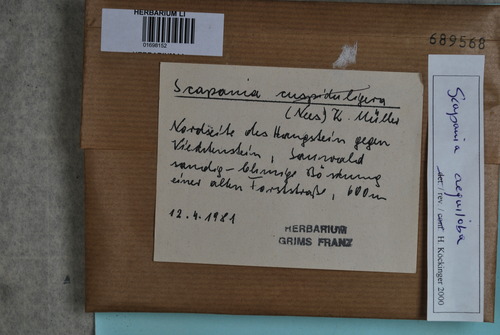 HERBARIUM LI
01698152
HERBARIUM LI
689568
Scapania cuspiduligera
(Nees) K. Müller
Nordseite des Haugstein gegen
Viechtenstein, Sauwald
sandig-lehmige Böschung
einer alten Forststraße, 600m
12.4.1981
HERBARIUM
GRIMS FRANZ
Scapania aequiloba
det./rev./conf. H. Köckinger 2000